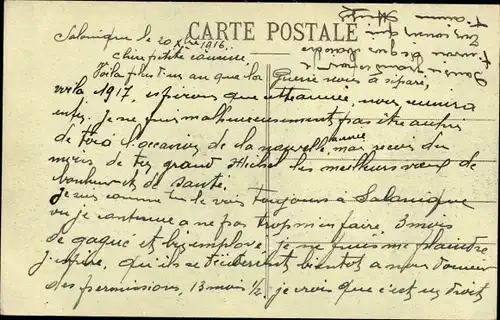 CARTE POSTALE
Salonique le 20 Xbre 1916.
chère petite
Voilà plus d'un an que la guerre nous a séparé,
voila 1917, espérons que cette année, nous réunira
enfin. Je ne puis malheureusement pas être auprès
de toi à l'occasion de la nouvelle année, mais reçois du
moins de ton grand Michel les meilleurs vœux de
bonheur et de santé.
Je suis comme tu le vois toujours à Salonique
ou je continue a ne pas trop m'en faire, 3 mois
de gagné et bien employé, je ne puis me plaindre
j'espère, qu'ils se décideront bientot a nous donner
des permissions, 13 mois 1/2, je crois que c'est un droit